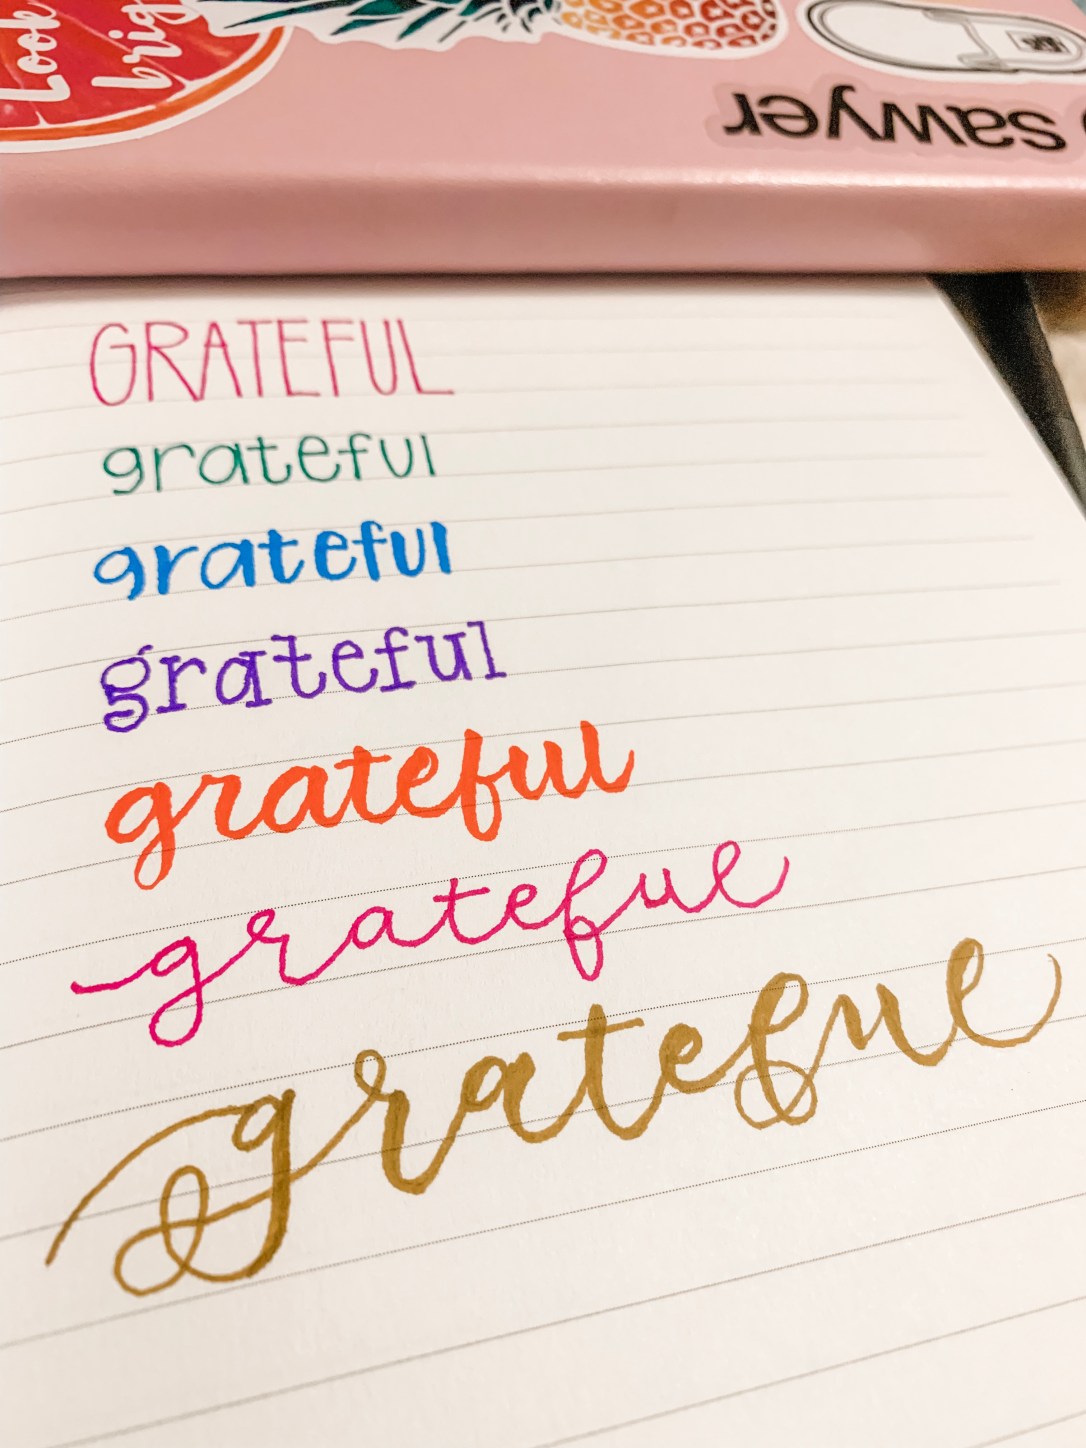 Look
brig
sawyer
GRATEFUL
grateful
grateful
grateful
grateful
grateful
grateful